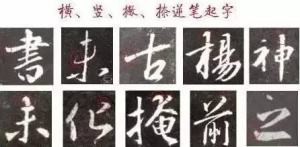 横、竖、撇、捺逆笔起字
書未古楊神
未化掩前之